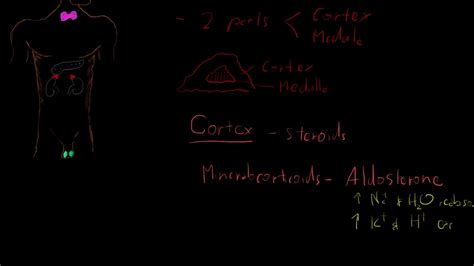 - 2 parts < Cortex
Medulla
Cortex
Medulla
Cortex - Steroids
Mineralocortcoids - Aldosterone
↑ Na⁺ & H₂O reabso
↑ K⁺ & H⁺